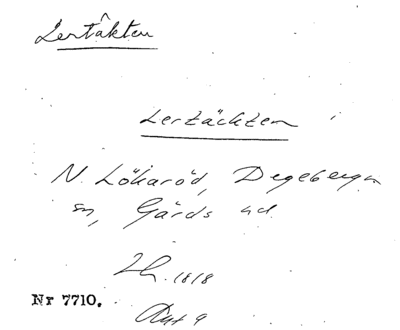 Lertäkten
Lertäckten
N. Lökaröd, Degeberga
sn, Gärds hd.
Lh. 1818
Nr 7710.
Akt 9